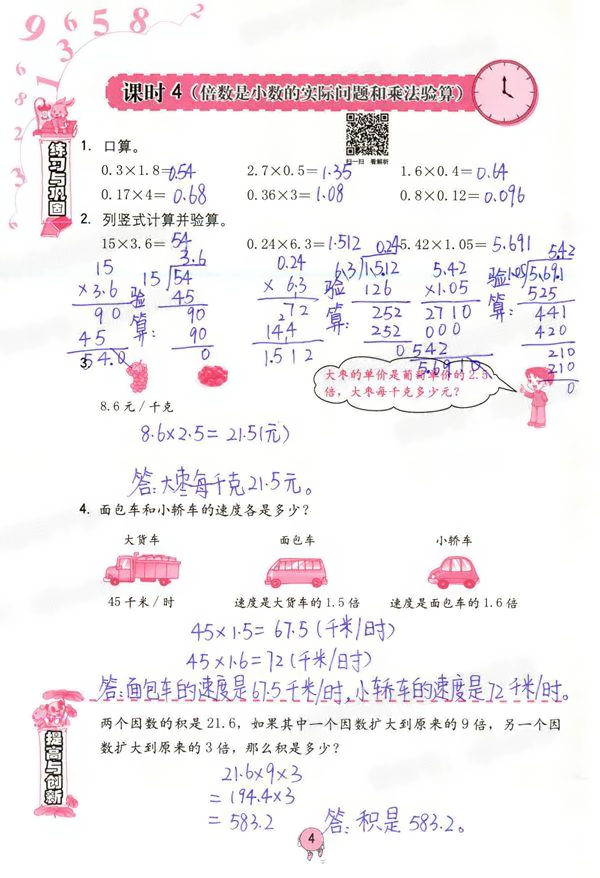 课时 4（倍数是小数的实际问题和乘法验算）
扫一扫 看解析
练习与巩固
1. 口算。
0.3×1.8=0.54 2.7×0.5=1.35 1.6×0.4=0.64
0.17×4=0.68 0.36×3=1.08 0.8×0.12=0.096
2. 列竖式计算并验算。
15×3.6=54 0.24×6.3=1.512 5.42×1.05=5.691
15
×3.6
90
45
54.0
验算:
3.6
15)54
45
90
90
0
0.24
×6.3
72
144
1.512
验算:
0.24
6.3)1.512
126
252
252
0
5.42
×1.05
2710
000
542
5.6910
验算:
5.42
1.05)5.691
525
441
420
210
210
0
3.
大枣的单价是葡萄单价的2.5
倍，大枣每千克多少元？
8.6元/千克
8.6×2.5=21.5(元)
答:大枣每千克21.5元。
4. 面包车和小轿车的速度各是多少？
大货车 面包车 小轿车
45千米/时 速度是大货车的1.5倍 速度是面包车的1.6倍
45×1.5=67.5(千米/时)
45×1.6=72(千米/时)
答:面包车的速度是67.5千米/时,小轿车的速度是72千米/时。
提高与创新
两个因数的积是21.6，如果其中一个因数扩大到原来的9倍，另一个因
数扩大到原来的3倍，那么积是多少？
21.6×9×3
=194.4×3
=583.2 答:积是583.2。
4